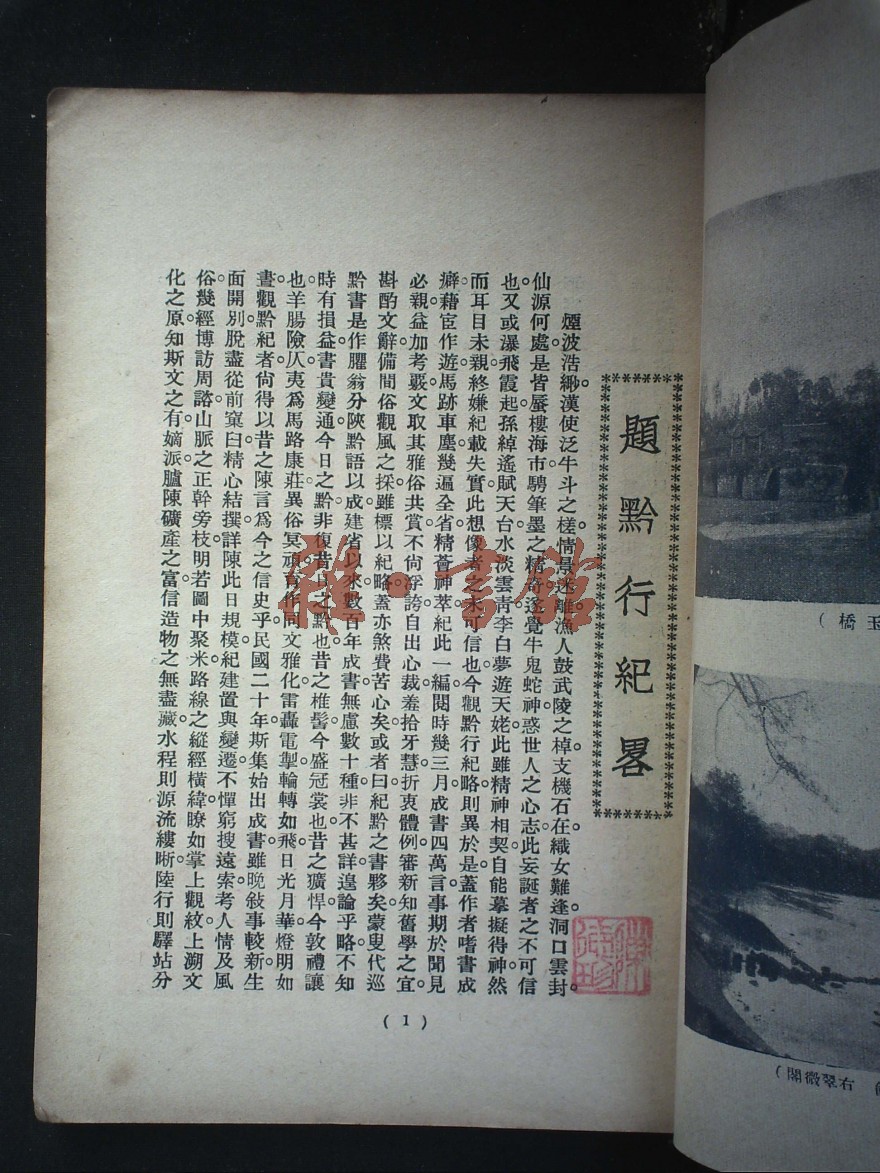 題黔行紀畧
煙波浩緲漢使泛牛斗之槎情景迷離漁人鼓武陵之棹支機石在織女難逢洞口雲封
仙源何處是皆蜃樓海市騁筆墨之精奇遂覺牛鬼蛇神惑世人之心志此妄誕者之不可信
也又或瀑飛霞起孫綽遙賦天台水淡雲靑李白夢遊天姥此雖精神相契自能摹擬得神然
而耳目未親終嫌紀載失實此想像者之未可信也今觀黔行紀略則異於是蓋作者嗜書成
癖藉宦作遊馬跡車塵幾遍全省精薈神萃紀此一編閱時幾三月成書四萬言事期於聞見
必親益加考覈文取其雅俗共賞不尙浮誇自出心裁羞拾牙慧折衷體例審新知舊學之宜
斟酌文辭備間俗觀風之採雖標以紀略蓋亦煞費苦心矣或者曰紀黔之書夥矣蒙叟代巡
黔書是作臞翁分陝黔語以成建省以來數百年成書無慮數十種非不甚詳遑論乎略不知
時有損益書貴變通今日之黔非復昔日之黔也昔之椎髻今盛冠裳也昔之獷悍今敦禮讓
也羊腸險仄夷爲馬路康莊異俗冥頑育作同文雅化雷轟電掣輪轉如飛日光月華燈明如
晝觀黔紀者尙得以昔之陳言爲今之信史乎民國二十年斯集始出成書雖晚敍事較新生
面開別脫盡從前窠臼精心結撰詳陳此日規模紀建置與變遷不憚窮搜遠索考人情及風
俗幾經博訪周諮山脈之正幹旁枝明若圖中聚米路線之縱經橫緯瞭如掌上觀紋上溯文
化之原知斯文之有嫡派臚陳礦產之富信造物之無盡藏水程則源流縷晰陸行則驛站分
( 1 )
玉橋 )
右翠微閣 )
雜·書館